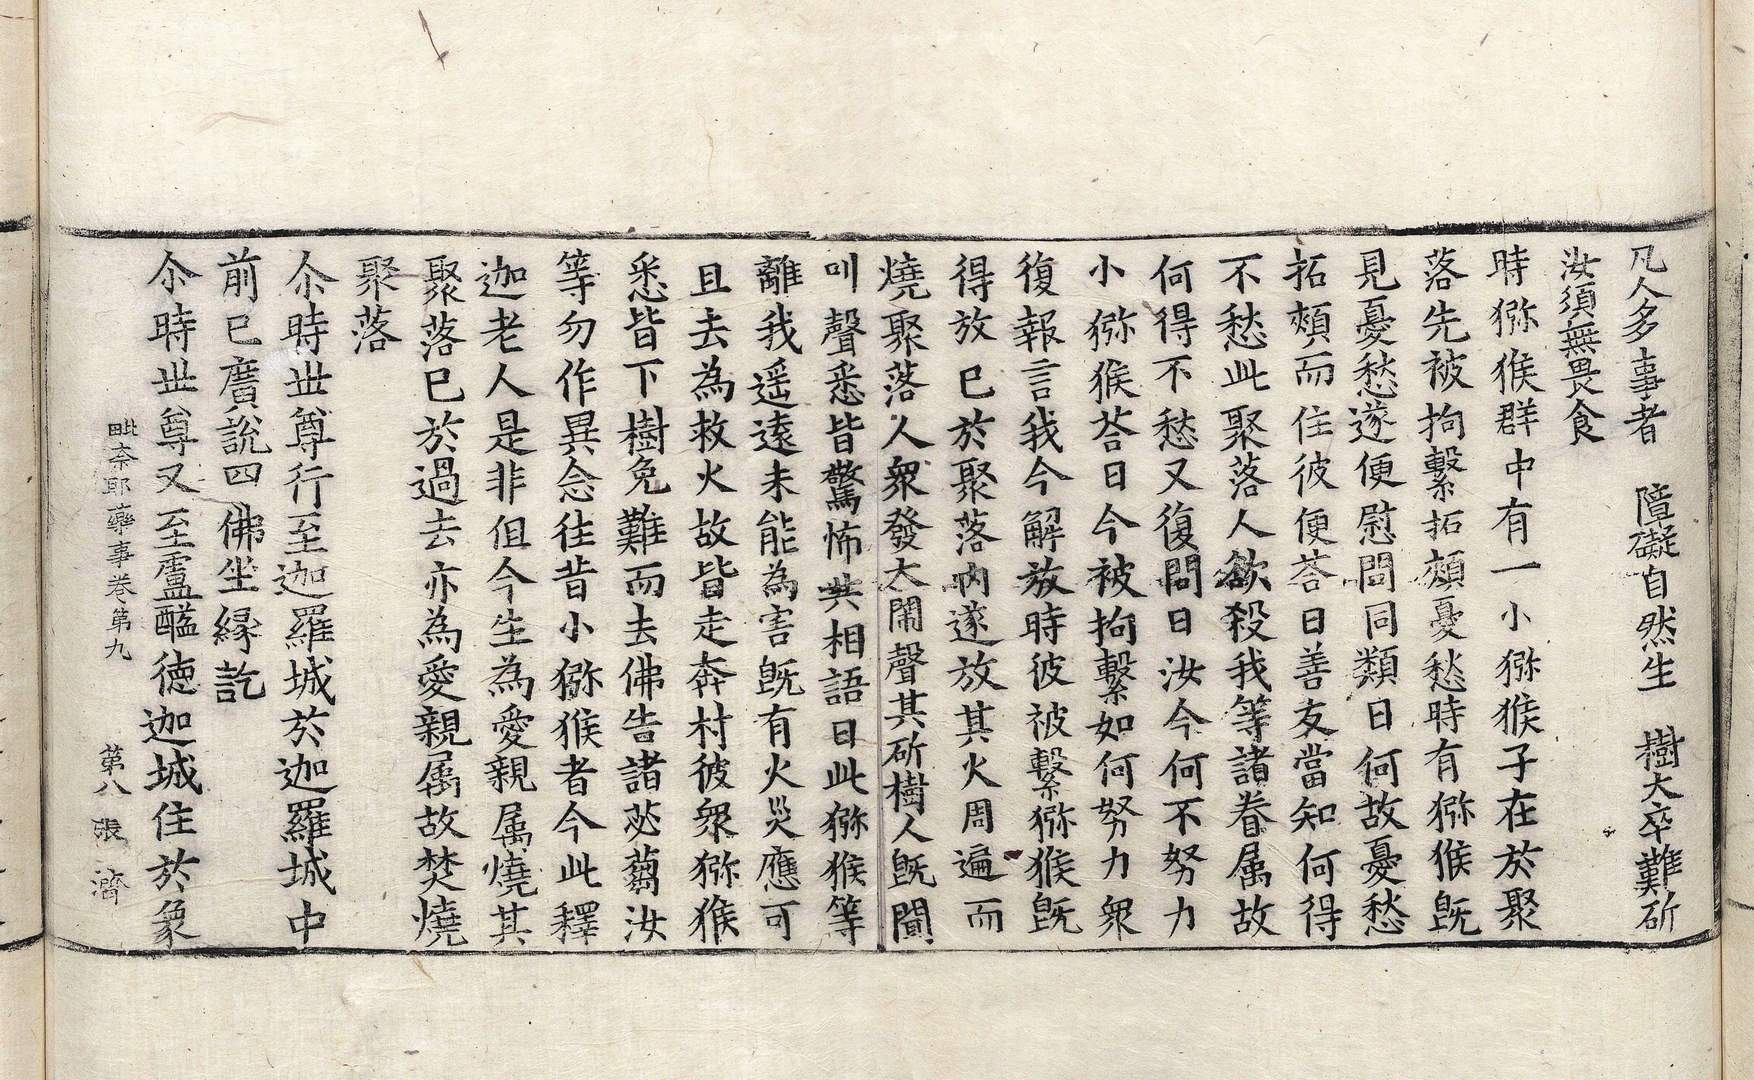 凡人多事者　障礙自然生　樹大卒難斫
汝須無畏食
時猕猴群中有一小猕猴子在於聚
落先被拘繫拓頰憂愁時有猕猴旣
見憂愁遂便慰問同類曰何故憂愁
拓頰而住彼便荅曰善友當知何得
不愁此聚落人欲殺我等諸眷属故
何得不愁又復問曰汝今何不努力
小猕猴荅曰今被拘繫如何努力衆
復報言我今解放時彼被繫猕猴旣
得放已於聚落內遂放其火周遍而
燒聚落人衆發大閙聲其斫樹人旣聞
叫聲悉皆驚怖共相語曰此猕猴等
離我遥逺未能為害旣有火災應可
且去為救火故皆走奔村彼衆猕猴
悉皆下樹免難而去佛告諸苾蒭汝
等勿作異念往昔小猕猴者今此釋
迦老人是非但今生為愛親属燒其
聚落已於過去亦為愛親属故焚燒
聚落
尒時世尊行至迦羅城於迦羅城中
前已廣說四佛坐縁訖
尒時世尊又至盧醯德迦城住於象
毗奈耶藥事卷第九　第八張　濟